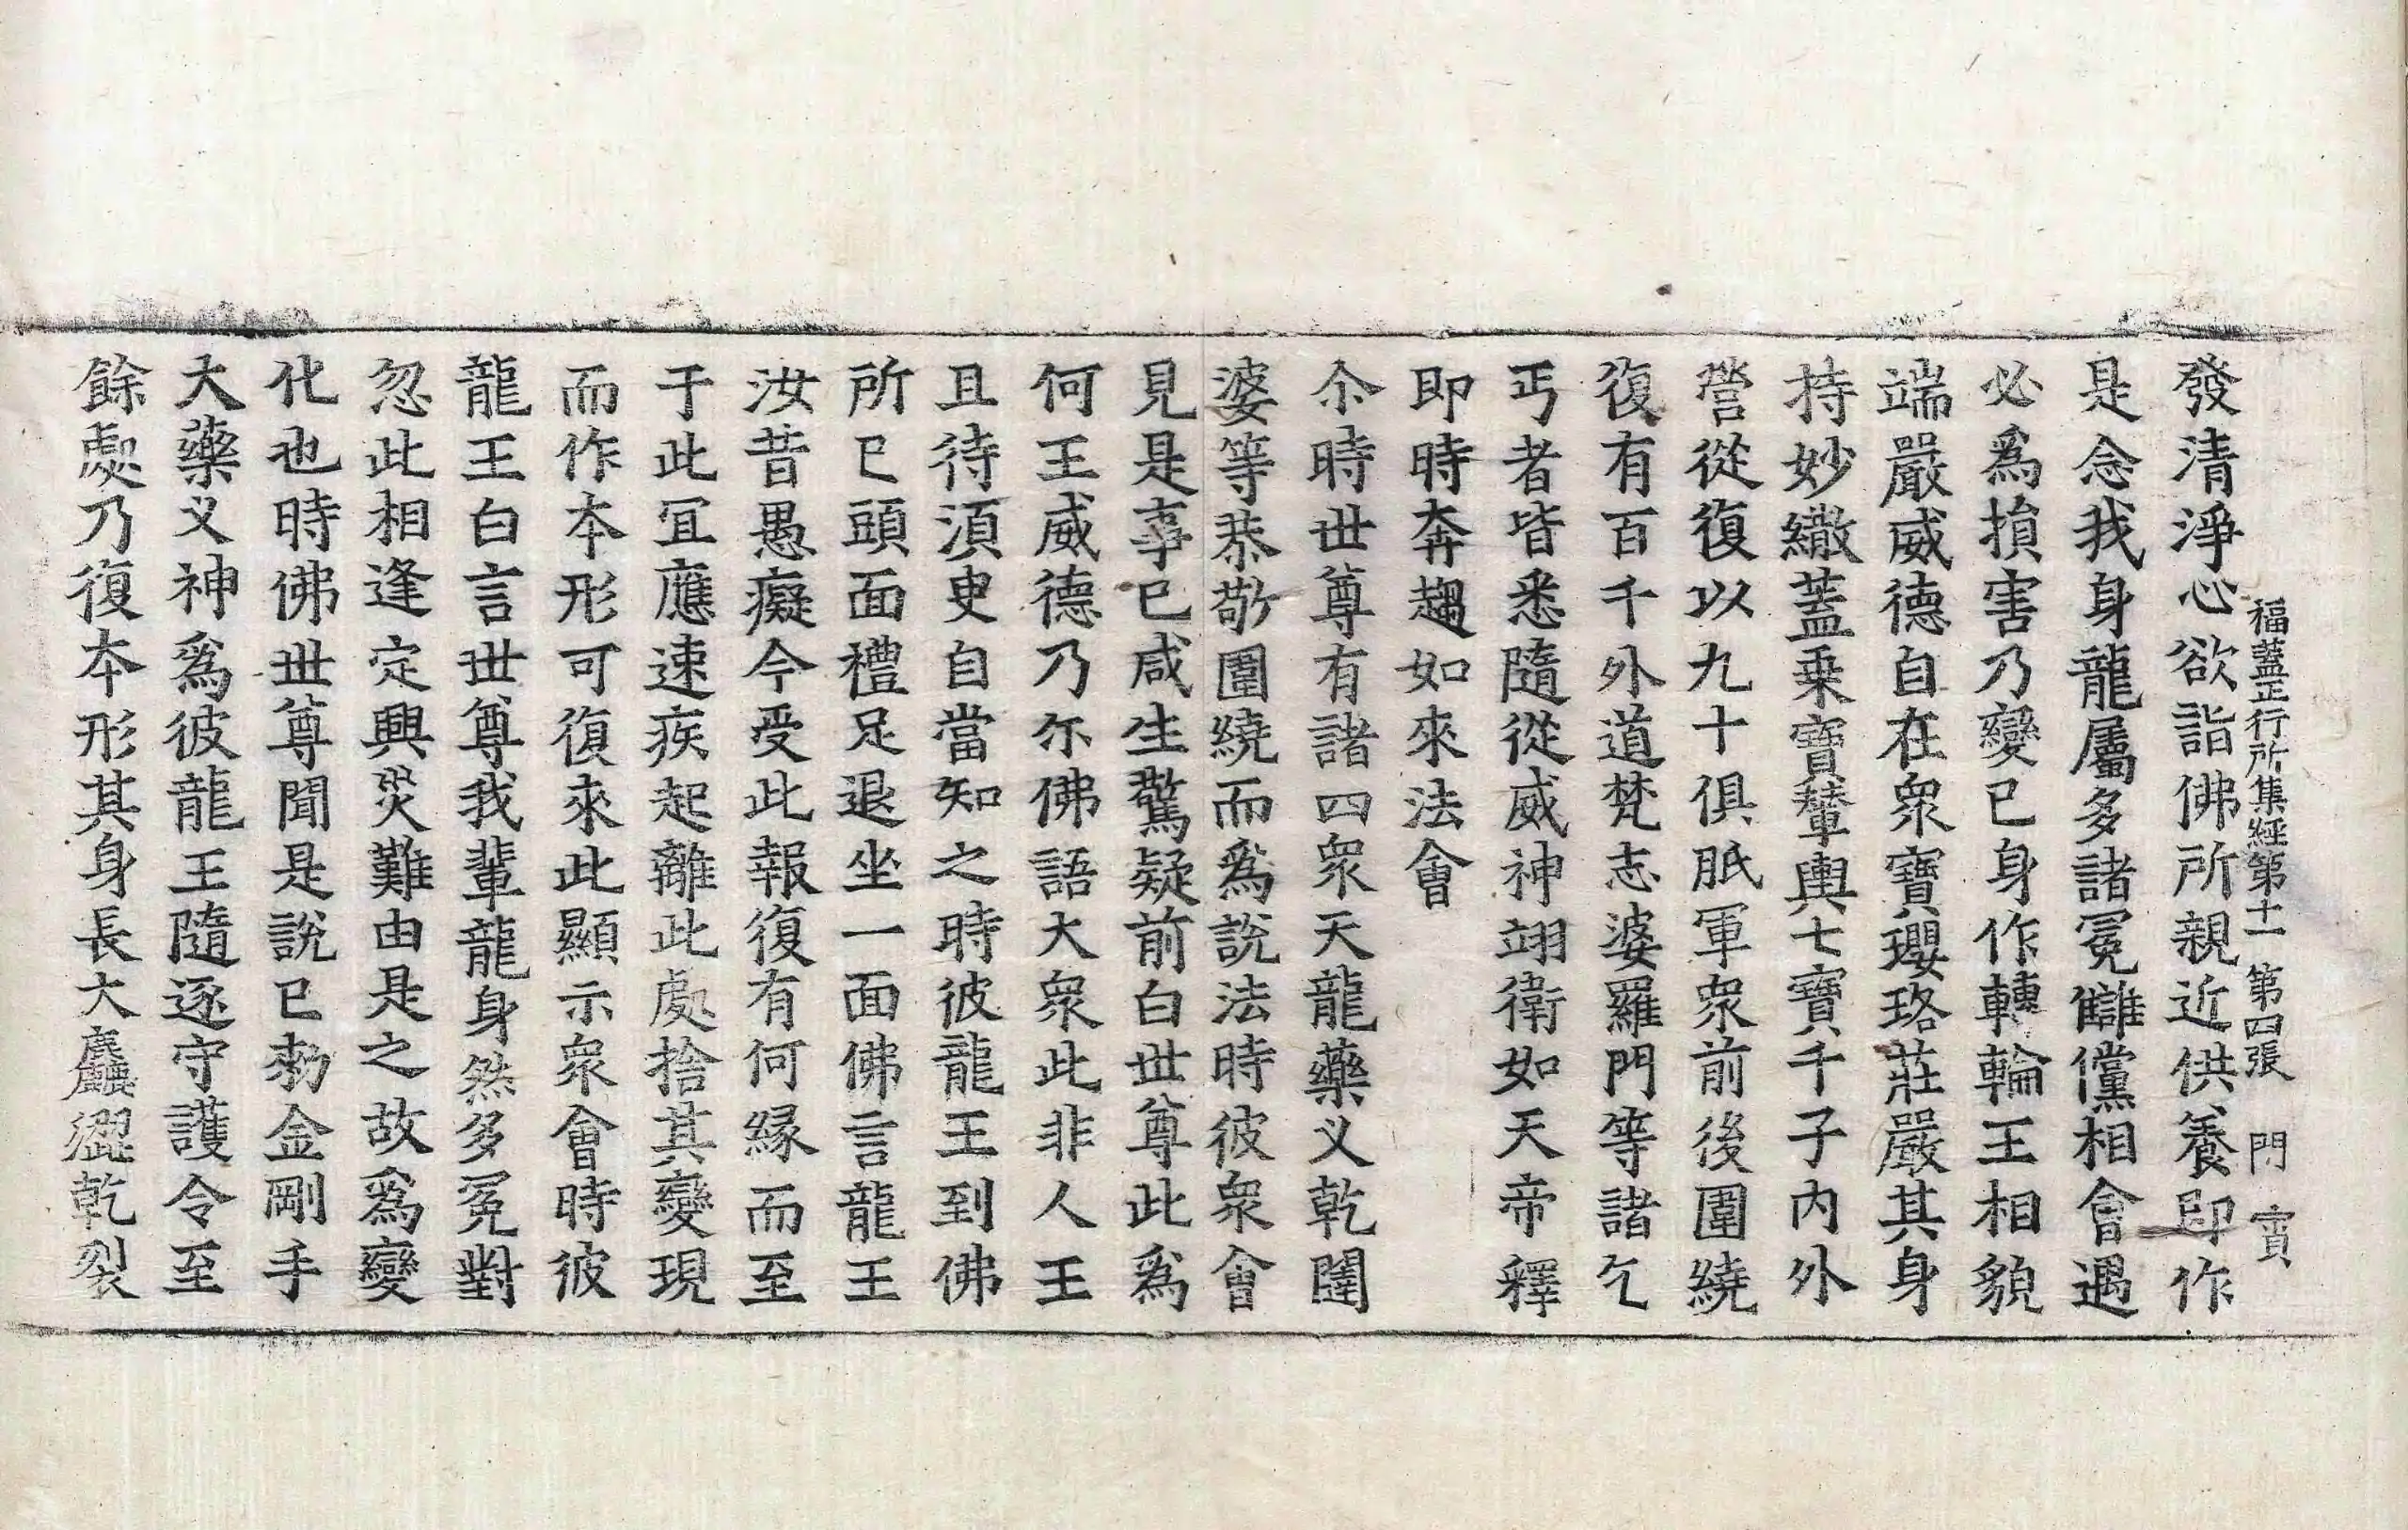 福蓋正行所集經第十一 第四張 門 賓
發清淨心欲詣佛所親近供養即作
是念我身龍屬多諸冤讎儻相會遇
必爲損害乃變己身作轉輪王相貌
端嚴威德自在衆寶瓔珞莊嚴其身
持妙繖蓋乗寶輦輿七寶千子内外
營從復以九十俱胝軍衆前後圍繞
復有百千外道梵志婆羅門等諸乞
丐者皆悉隨從威神翊衛如天帝釋
即時奔趨如來法會
尒時世尊有諸四衆天龍藥义乾闥
婆等恭敬圍繞而爲說法時彼衆會
見是事已咸生驚疑前白世尊此爲
何王威德乃尒佛語大衆此非人王
且待須臾自當知之時彼龍王到佛
所已頭面禮足退坐一面佛言龍王
汝昔愚癡今受此報復有何緣而至
于此冝應速疾起離此處捨其變現
而作本形可復來此顯示衆會時彼
龍王白言世尊我輩龍身然多冤對
忽此相逢定興災難由是之故爲變
化也時佛世尊聞是說已勑金剛手
大藥义神爲彼龍王隨逐守護令至
餘處乃復本形其身長大麤澀乾裂